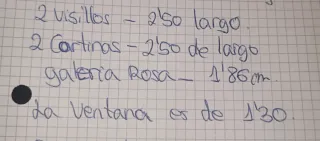 2 visillos - 2'50 largo.
2 Cortinas - 2'50 de largo
galeria Rosa - 1'86 cm.
La ventana es de 1'30.